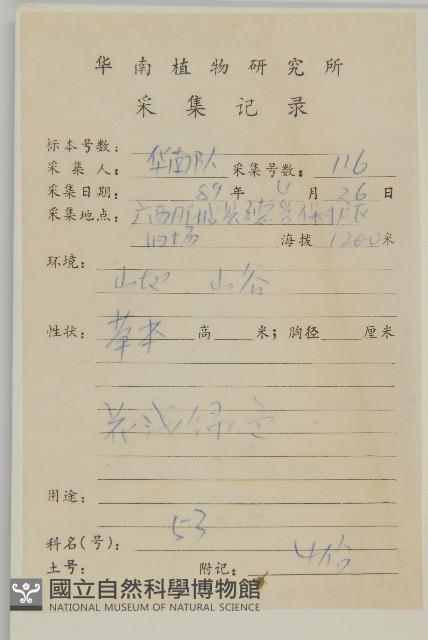 华南植物研究所
采集记录
标本号数：
采集人： 华南队 采集号数： 116
采集日期： 89 年 4 月 26 日
采集地点： 广西 县 保护区
旧场 海拨 1200 米
环境：
山地 山谷
性状： 草本 高 米；胸径 厘米
花浅绿色
用途：
53
科名（号）： 4份
土号： 附记：
國立自然科學博物館
NATIONAL MUSEUM OF NATURAL SCIENCE